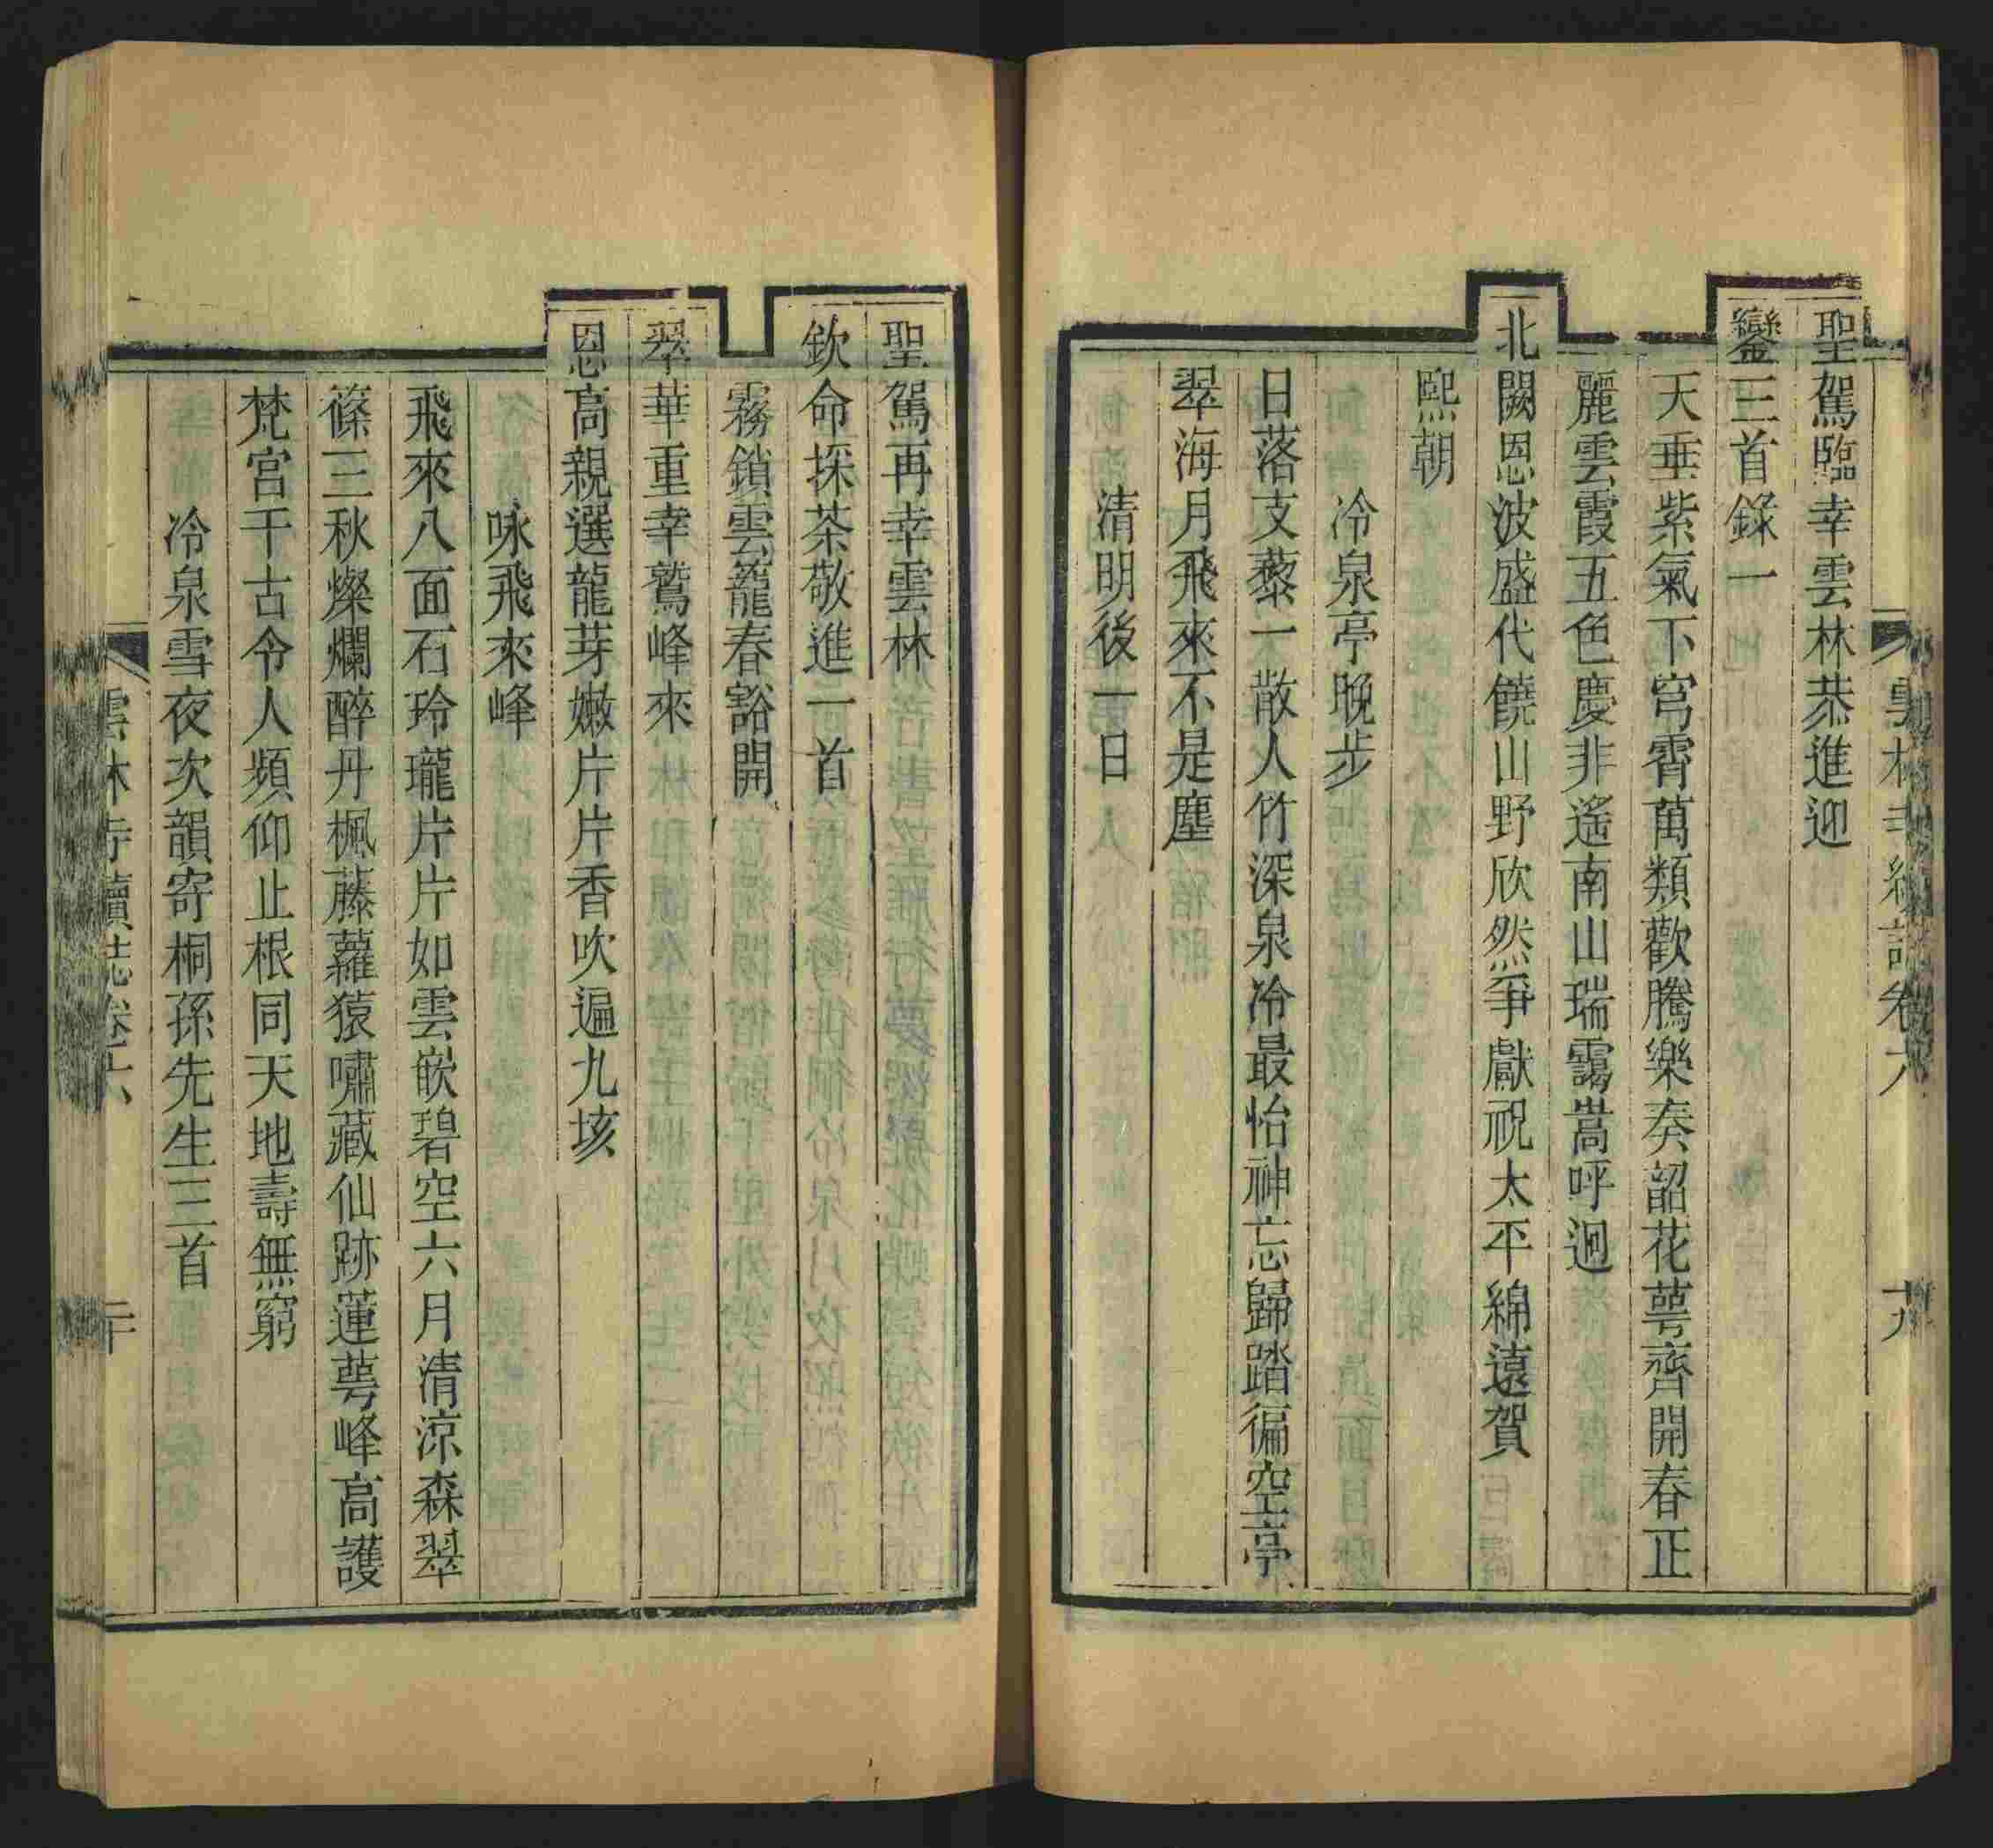 聖駕臨幸雲林恭進迎
鑾三首錄一
天垂紫氣下穹霄萬類歡騰樂奏韶花萼齊開春正
麗雲霞五色慶非遙南山瑞靄嵩呼迥
北闕恩波盛代饒山野欣然爭獻祝太平綿遠賀
熙朝
冷泉亭晚步
日落支藜一散人竹深泉冷最怡神忘歸踏徧空亭
翠海月飛來不是塵
清明後一日
聖駕再幸雲林
欽命採茶敬進一首
霧鎖雲籠春豁開
翠華重幸鷲峰來
恩高親選龍芽嫩片片香吹遍九垓
咏飛來峰
飛來八面石玲瓏片片如雲嵌碧空六月清涼森翠
篠三秋燦爛醉丹楓藤蘿猿嘯藏仙跡蓮萼峰高護
梵宮千古令人頻仰止根同天地壽無窮
冷泉雪夜次韻寄桐孫先生三首
雲林寺續志卷六
二十